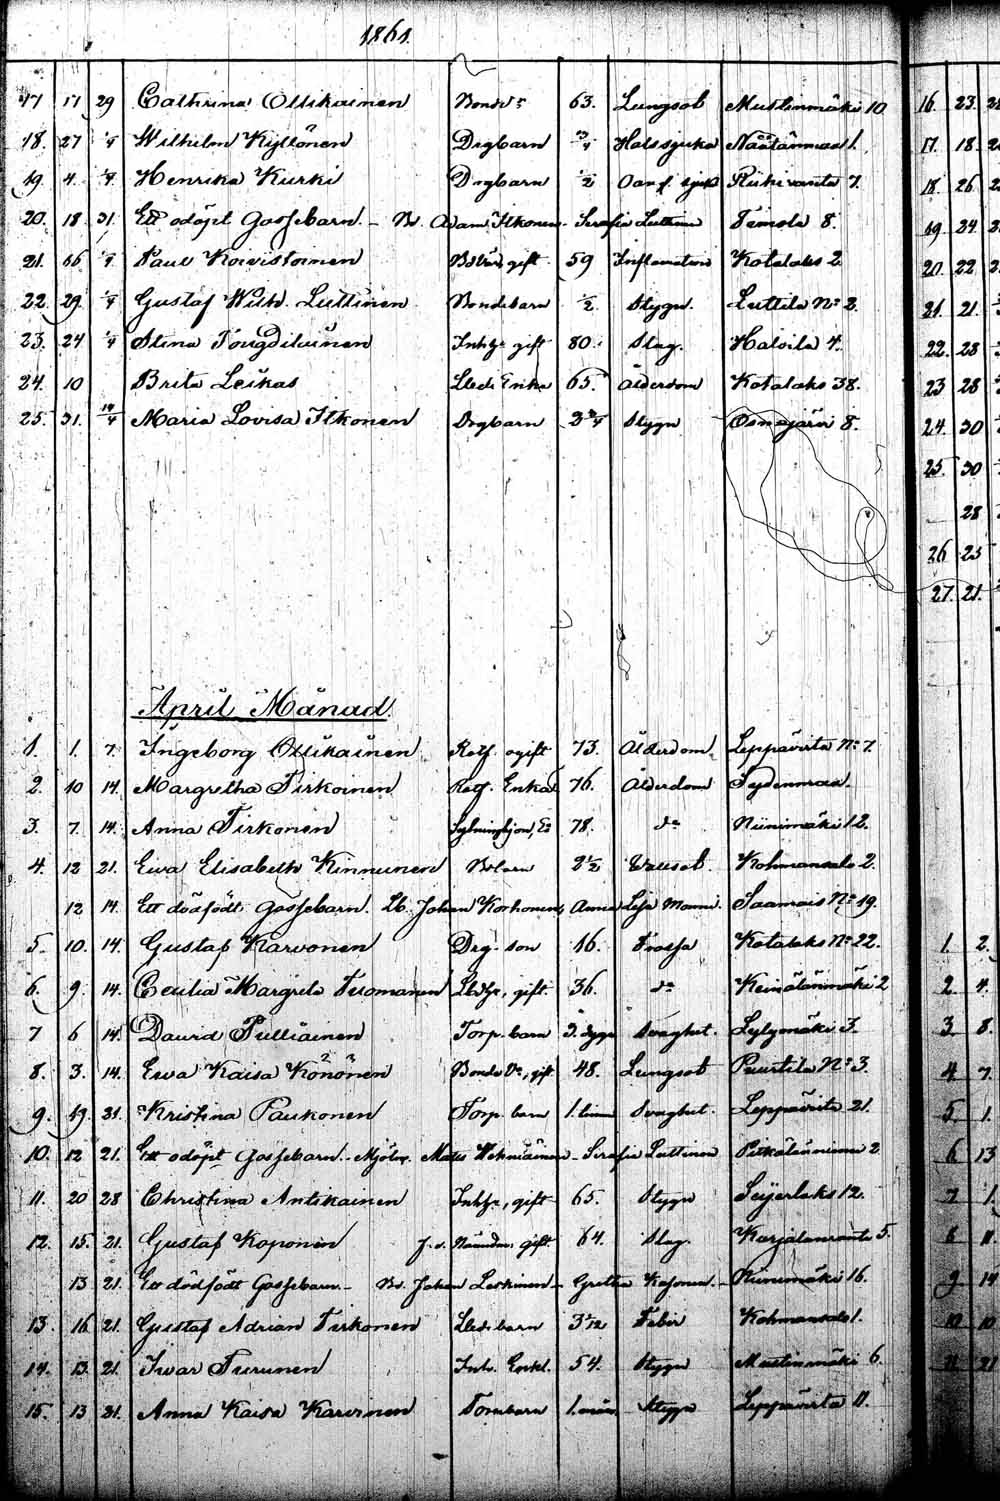 1861.
17 17 29 Cathrina Ollikainen Bondes 63. Lungsot Mustinmäki 10
18. 27 1/4 Wilhelm Kyllönen Drgbarn 3/4 Halssjuka Näätänmaa 1.
19 4. 1/4 Henrika Kurki Drgbarn 1/2 sjuk Riikivanta 7.
20. 18 31. Ett odöpt Gossebarn. – Bd. Adam Itkonen – Serafia Luttinen Timola 8.
21. 66 1/4 Paul Koivistoinen gift 59 Inflamation Kotalaks 2
22. 29. 1/4 Gustaf Wilh. Luttinen Bondebarn 1/2 Stygn. Luttila No 2.
23. 24 1/4 Stina Inhys gift 80. Slag. Halvila 4.
24. 10 Brita Leikas Enka 65. Ålderdom Kotalaks 38.
25. 31. 14/4 Maria Lovisa Itkonen Drgbarn Stygn Osmajärvi 8.
April Månad.
1. 1. 7. Ingeborg Ollikainen Rotf. ogift 73. Ålderdom Leppävirta No 7.
2. 10 14. Margretha Tirkoinen Rotf. Enka 76. Ålderdom Sydenmaa.
3. 7. 14. Anna Tirkonen 78. do Niinimäki 12.
4. 12 21. Ewa Elisabeth Kinnunen 2 1/2 Kohmansalo 2.
12 14. Ett dödfödt Gossebarn. Lb. Johan Korhonen, Anna Lisa Manni. Saamais No 19.
5. 10. 14. Gustaf Karvonen Drg. son 16. Frossa Kotalaks No 22.
6. 9. 14. Cecilia Margreta Tuomainen gift. 36. do Keinälänmäki 2
7 6 14. David Pulliainen Torp. barn 3. dygn Svaghet. Lylymäki 3.
8. 3. 14. Ewa Kaisa Könönen Bonde gift 48. Lungsot Puurtila No 3.
9. 19. 31. Kristina Paukonen Torp. barn 1. Svaghet. Leppävirta 21.
10. 12 21. Ett odöpt Gossebarn. – Mjöln. Mats Wehniäinen – Serafia Luttinen Pitkälänniemi 2
11. 20 28 Christina Antikainen Inhys, gift 65. Stygn Seijerlaks 12.
12. 15. 21. Gustaf Koponen gift. 64. Slag. Karjalanranta 5.
13 21. Ett dödfödt Gossebarn – Bd. Johan Leskinen – Gretha Kosonen – Niinimäki 16.
13. 16 21. Gustaf Adrian Tirkonen barn 3 1/12 Feber Kohmansalo 1.
14. 13. 21. Iwar Turunen Inh. Enkl. 54. Stygn Mustinmäki 6.
15. 13 21. Anna Kaisa Karvinen 1. mån Stygn Leppävirta 11.
16. 23.
17. 18
18. 26
19 24.
20. 22
21. 21
22. 28
23 28
24. 30
25. 30
28
26 25
27. 21.
1. 2.
2 4.
3 8.
4. 7
5 1.
6 13
7 1.
8 11.
9 14
10 10
11. 21